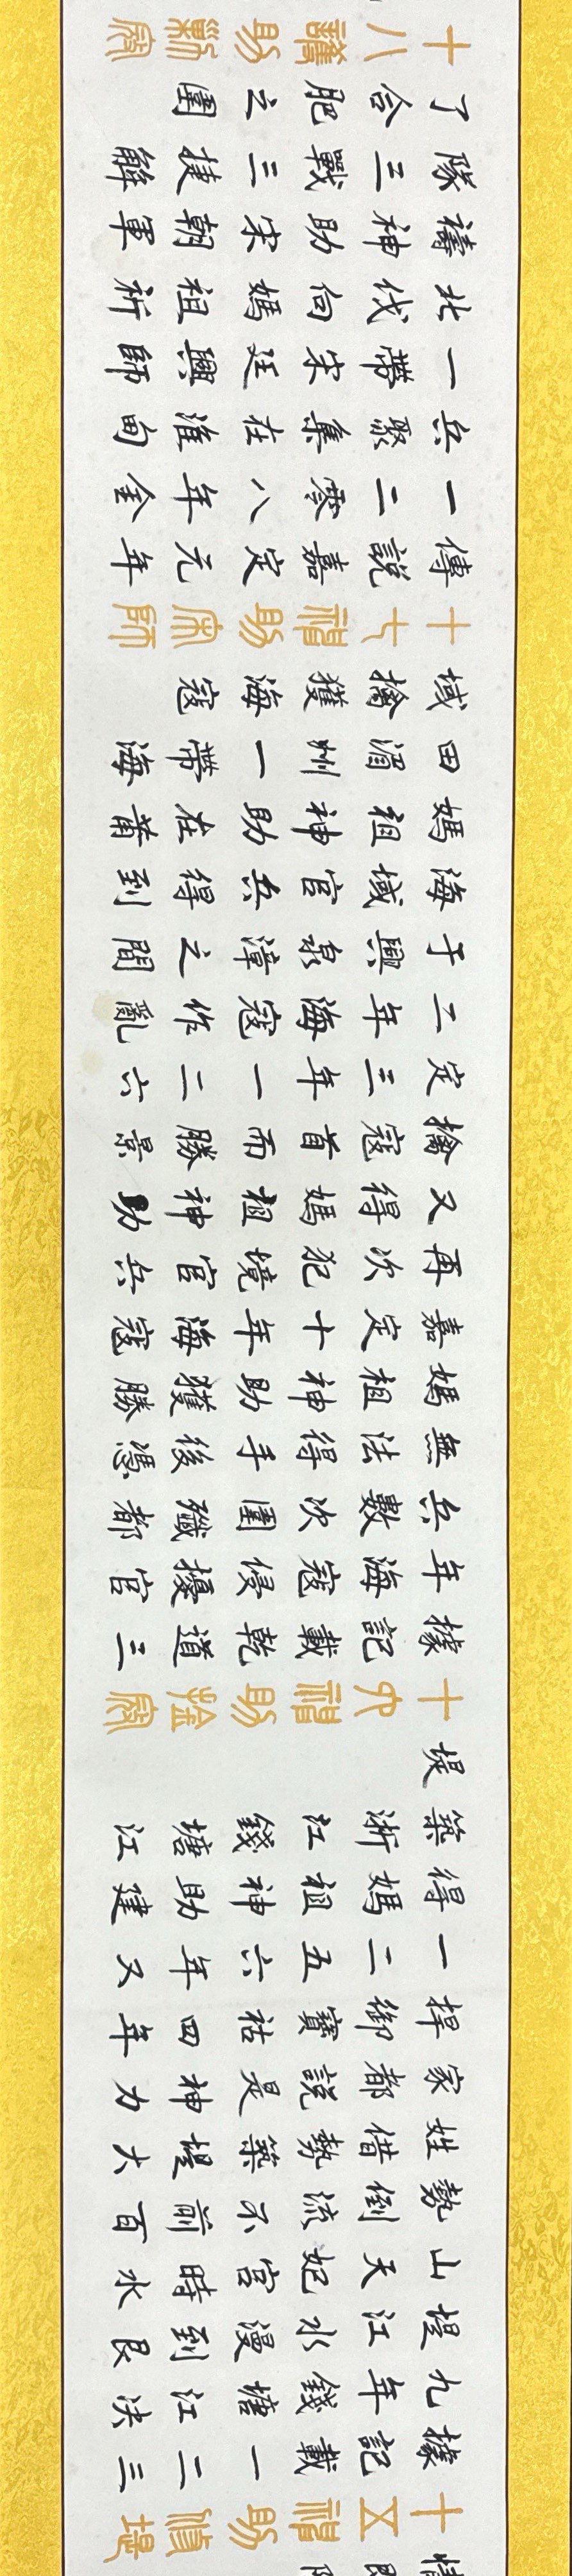 十五神助堤
據記載一二三
九年錢塘江決
堤江水漫到艮
山天妃宮時水
勢倒流不前百
姓借勢築堤大
家都說是神力
捍御寶祐四年
一二五六年又
得媽祖神助建
築浙江錢塘江
堤
十六神助擒寇
據記載乾道三
年海寇侵擾官
兵數次圍殲都
無法得手後憑
媽祖神助獲勝
嘉定十年海寇
再次犯境官兵
又得媽祖神助
擒寇首而勝景
定三年一二六
二年海寇作亂
于興泉漳之間
海域官兵得到
媽祖神助在莆
田湄州一帶海
域擒獲海寇
十七神助宋師
傳說嘉定元年
一二零八年金
兵聚集在淮甸
一帶宋廷興師
北伐向媽祖祈
禱神助宋朝軍
隊三戰三捷解
了合肥之圍
十八助